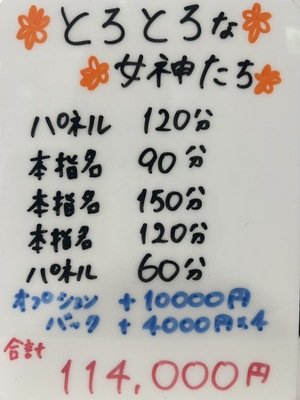 とろとろな
女神たち
パネル 120分
本指名 90分
本指名 150分
本指名 120分
パネル 60分
オプション +10000円
バック +4000円×4
合計
114,000円